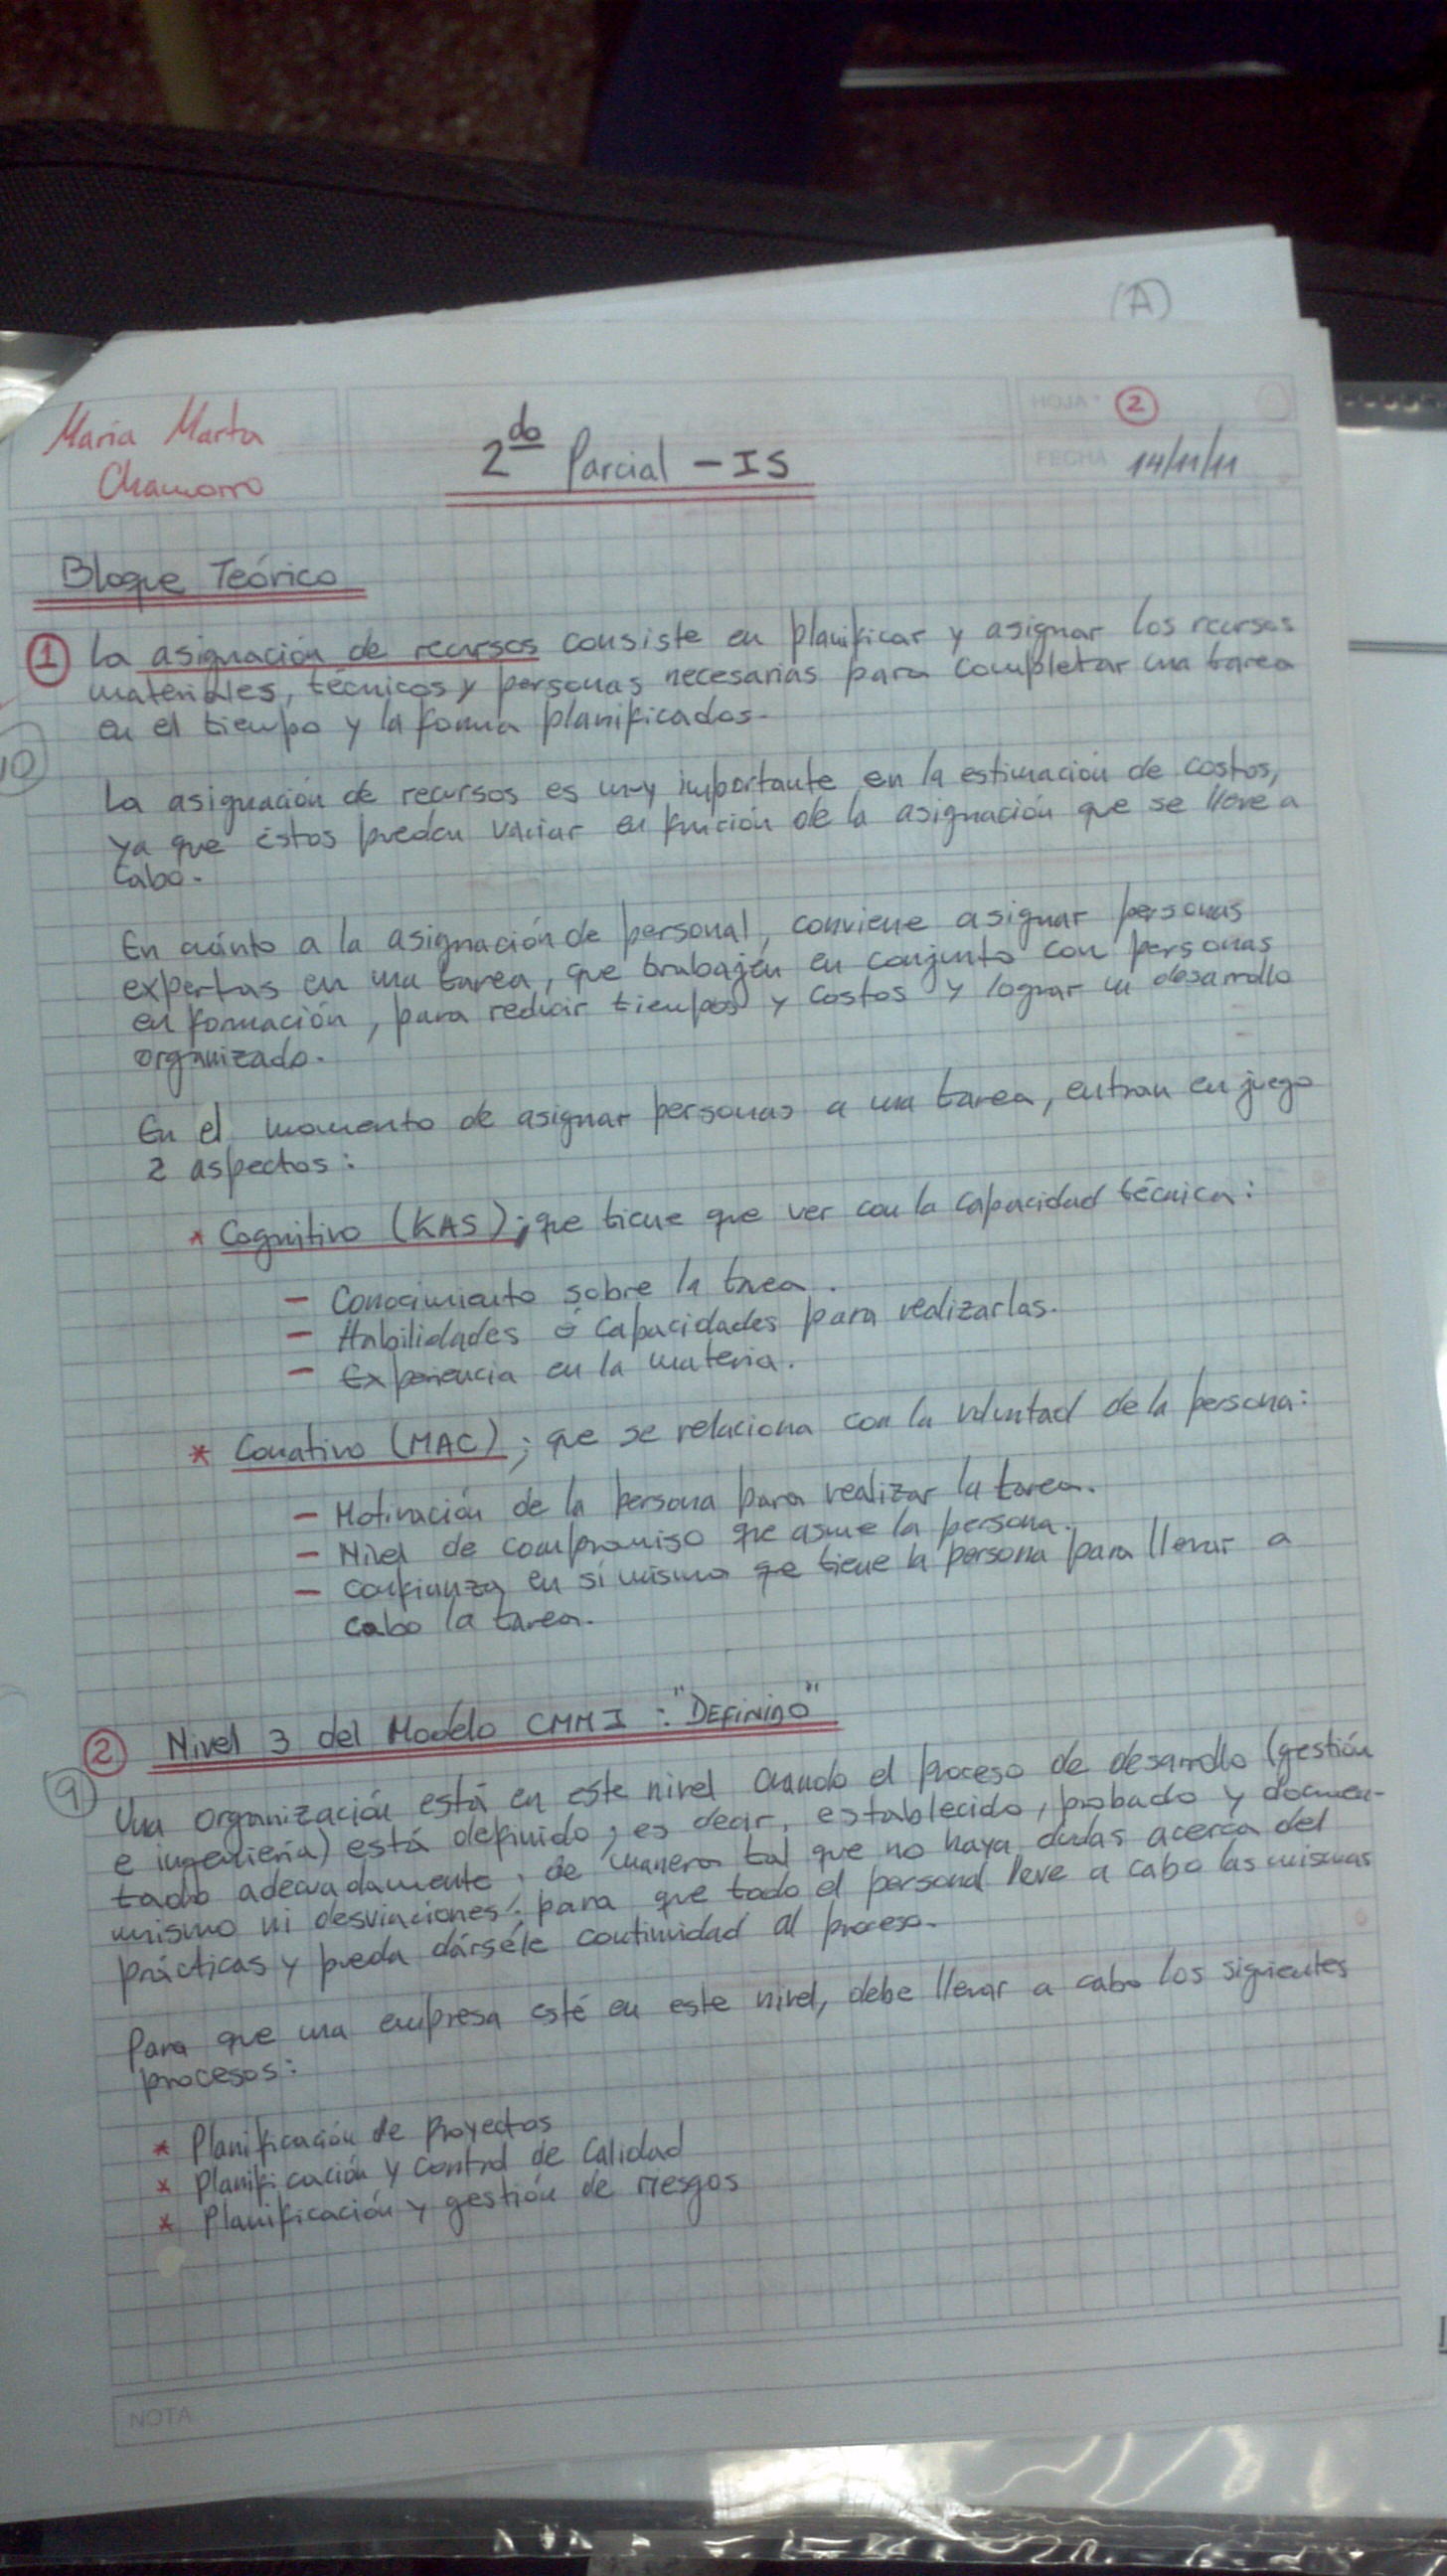 (A)
Maria Marta
Chamorro
2do Parcial - IS
HOJA Nº 2
FECHA 14/11/11
Bloque Teórico
① La asignación de recursos consiste en planificar y asignar los recursos
materiales, técnicos y personas necesarias para completar una tarea
en el tiempo y la forma planificados.
10
La asignación de recursos es muy importante en la estimación de costos,
ya que éstos pueden variar en función de la asignación que se lleve a
cabo.
En cuánto a la asignación de personal, conviene asignar personas
expertas en una tarea, que trabajen en conjunto con personas
en formación, para reducir tiempos y costos y lograr un desarrollo
organizado.
En el momento de asignar personas a una tarea, entran en juego
2 aspectos:
* Cognitivo (KAS); que tiene que ver con la capacidad técnica:
- Conocimiento sobre la tarea.
- Habilidades ó capacidades para realizarlas.
- Experiencia en la materia.
* Conativo (MAC); que se relaciona con la voluntad de la persona:
- Motivación de la persona para realizar la tarea.
- Nivel de compromiso que asume la persona.
- Confianza en sí mismo que tiene la persona para llevar a
cabo la tarea.
② Nivel 3 del Modelo CMMI: "DEFINIDO"
9
Una organización está en este nivel cuando el proceso de desarrollo (gestión
e ingeniería) está definido; es decir, establecido, probado y documen-
tado adecuadamente, de manera tal que no haya dudas acerca del
mismo ni desviaciones; para que todo el personal lleve a cabo las mismas
prácticas y pueda dársele continuidad al proceso.
Para que una empresa esté en este nivel, debe llevar a cabo los siguientes
procesos:
* Planificación de Proyectos
* Planificación y Control de Calidad
* Planificación y gestión de riesgos
NOTA